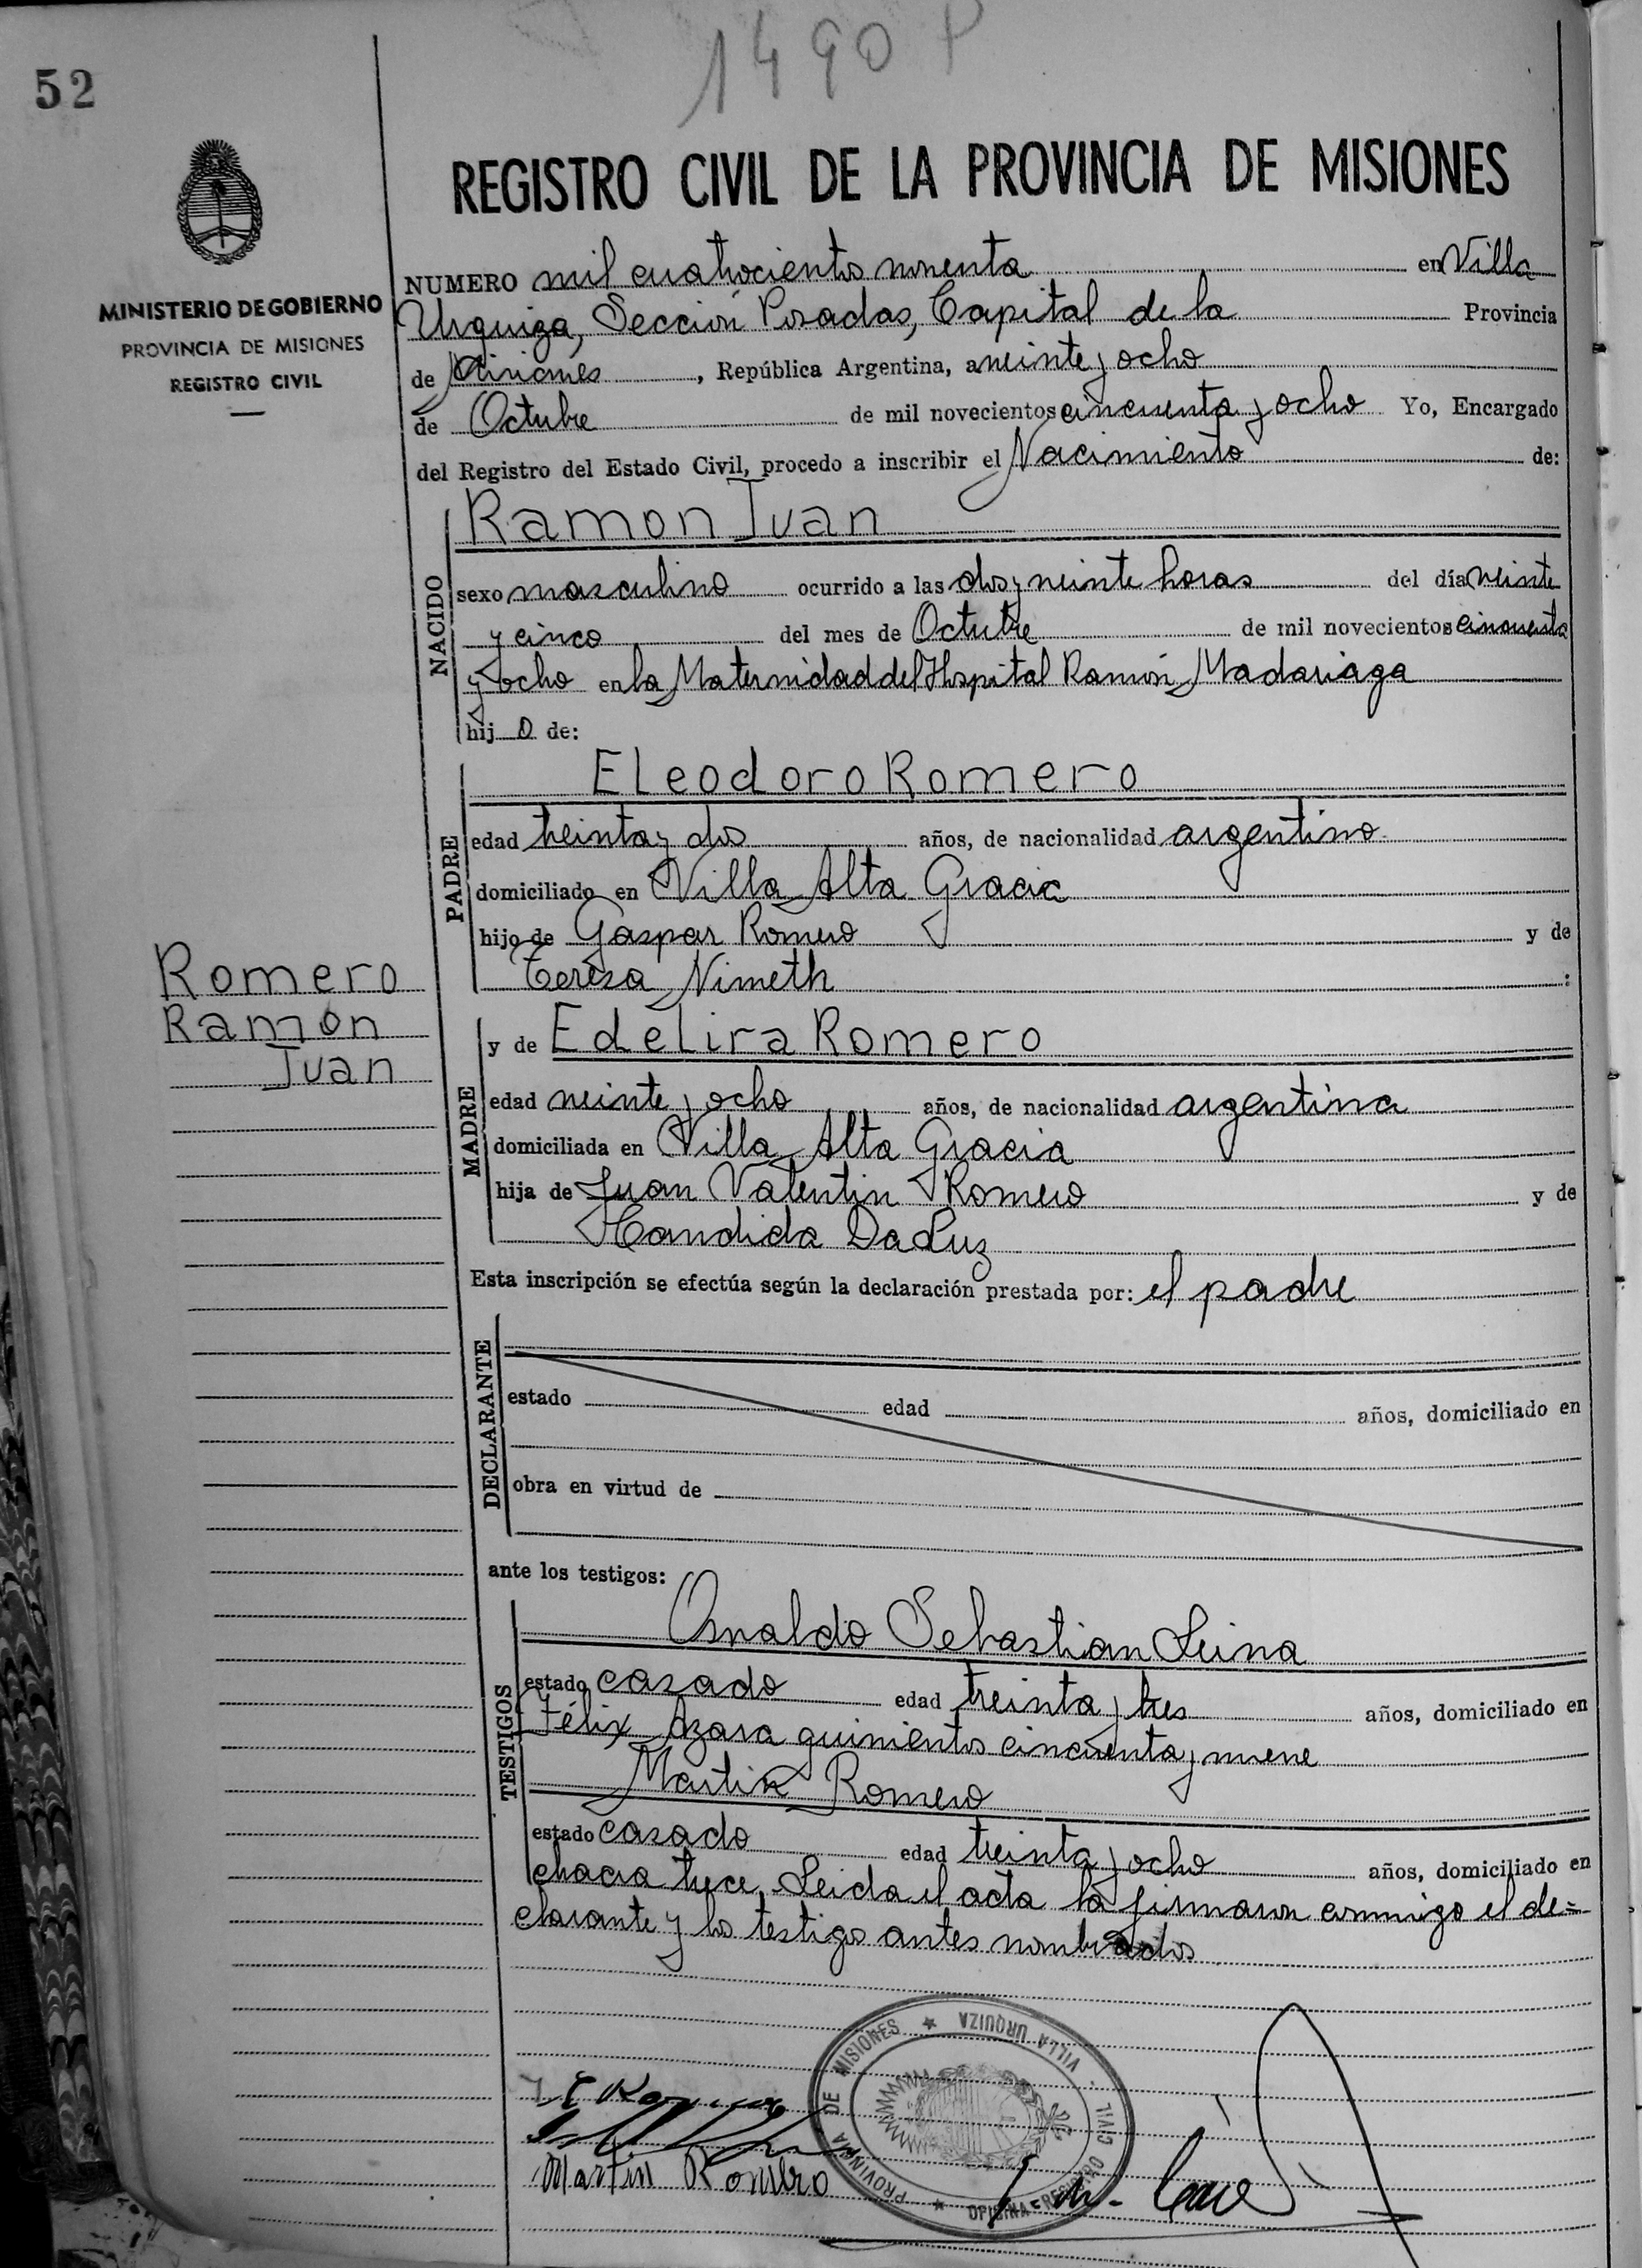 1490 P
52
REGISTRO CIVIL DE LA PROVINCIA DE MISIONES
MINISTERIO DE GOBIERNO
PROVINCIA DE MISIONES
REGISTRO CIVIL
NUMERO mil cuatrocientos noventa en Villa
Urquiza, Sección Posadas, Capital de la Provincia
de Misiones, República Argentina, a veinte y ocho
de Octubre de mil novecientos cincuenta y ocho Yo, Encargado
del Registro del Estado Civil, procedo a inscribir el Nacimiento de:
NACIDO
Ramon Ivan
sexo masculino ocurrido a las dos y veinte horas del día veinte
y cinco del mes de Octubre de mil novecientos cincuenta
y ocho en la Maternidad del Hospital Ramón Madariaga
hij o de:
PADRE
Eleodoro Romero
edad treinta y dos años, de nacionalidad argentino
domiciliado en Villa Alta Gracia
hijo de Gaspar Romero y de
Teresa Nimeth :
Romero
Ramón
Ivan
MADRE
y de Edelira Romero
edad veinte y ocho años, de nacionalidad argentina
domiciliada en Villa Alta Gracia
hija de Juan Valentin Romero y de
Candida Da Luz
Esta inscripción se efectúa según la declaración prestada por: el padre
DECLARANTE
estado edad años, domiciliado en
obra en virtud de
ante los testigos:
TESTIGOS
Osvaldo Sebastian Leiva
estado casado edad treinta y tres años, domiciliado en
Félix Azara quinientos cincuenta y nueve
Martin Romero
estado casado edad treinta y ocho años, domiciliado en
chacra trece. Leida el acta la firmaron conmigo el de=
clarante y los testigos antes nombrados
OFICINA REGISTRO CIVIL - VILLA URQUIZA ★ PROVINCIA DE MISIONES ★
Martin Romero